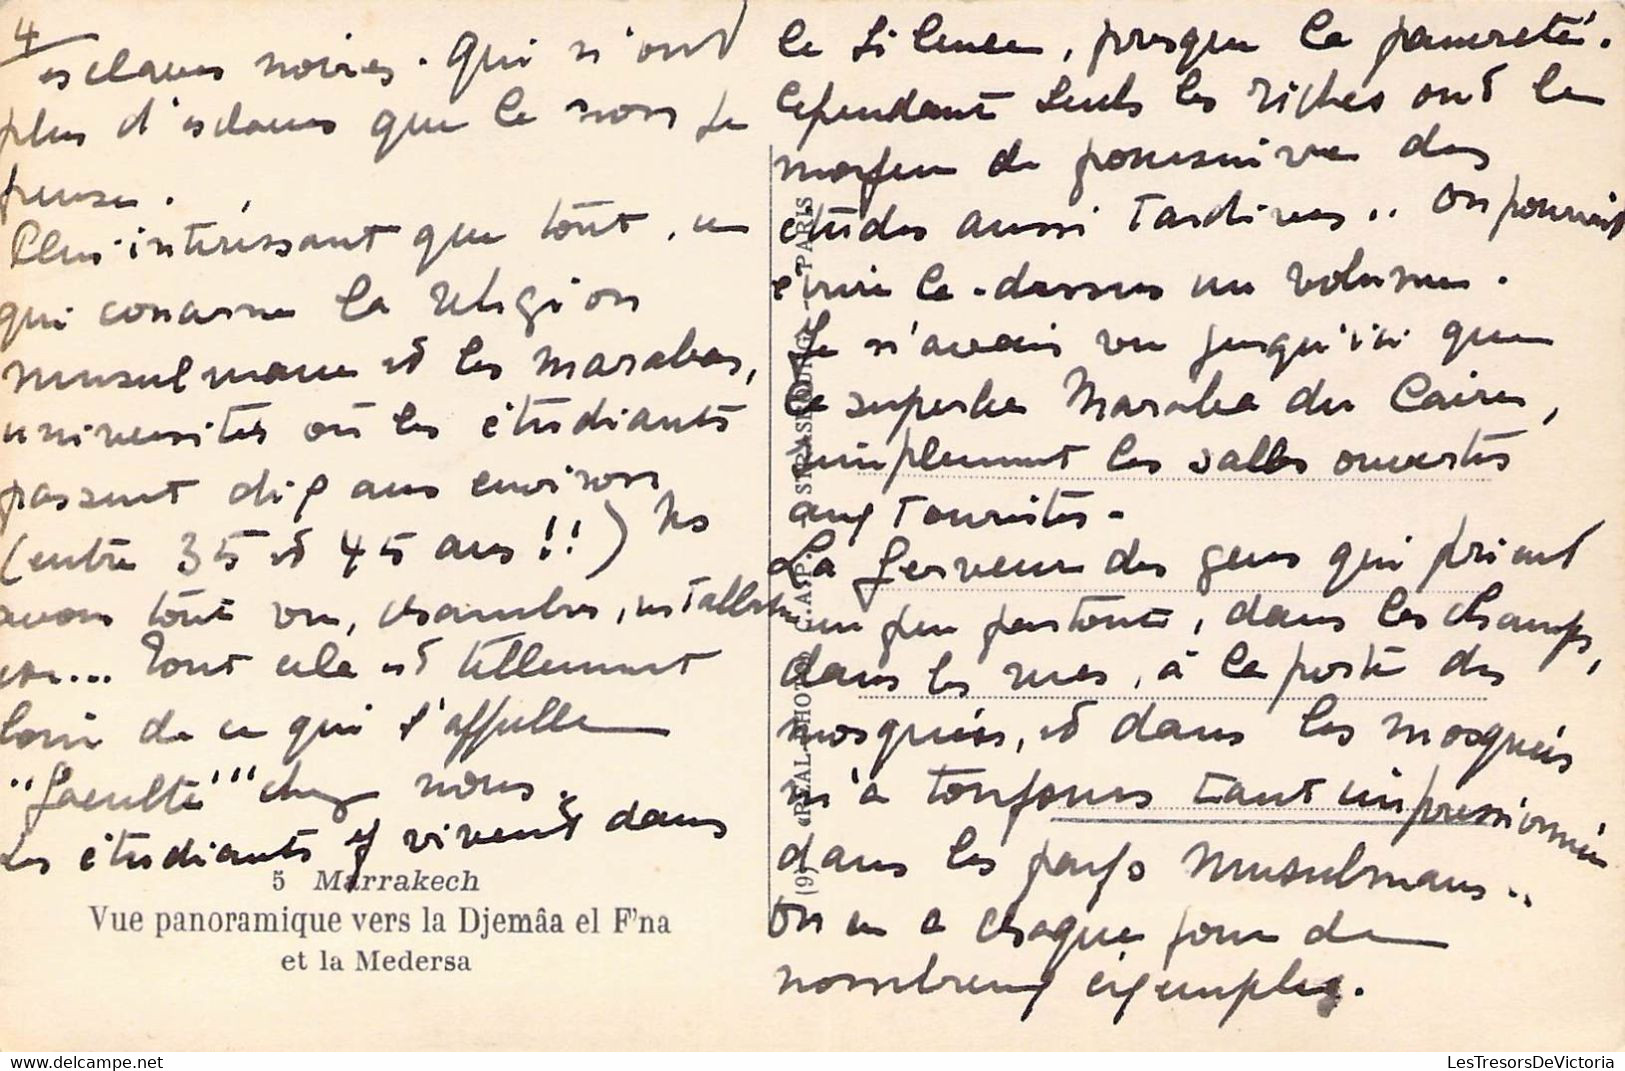 4
esclaves noires. Qui n'ont
plus d'esclaves que le nom je
pense.
Plus intéressant que tout, ce
qui concerne la religion
musulmane et les marabas,
universités où les étudiants
passent dix ans environ
(entre 35 et 45 ans!!) Ns
avons tout vu, chambres,
etc... Tout cela est tellement
loin de ce qui s'appelle
"faculté" chez nous.
Les étudiants y vivent dans
5 Marrakech
Vue panoramique vers la Djemâa el F'na
et la Medersa
(9) «REAL-PHOTO» C.A.P. STRASBOURG - PARIS
le silence, presque la pauvreté.
Cependant seuls les riches ont le
moyen de poursuivre des
études aussi tardives.. On pourrait
écrire là-dessus un volume.
Je n'avais vu jusqu'ici que
le superbe Maraba du Caire,
simplement les salles ouvertes
aux touristes -
La ferveur des gens qui prient
un peu partout, dans les champs,
dans les rues, à la porte des
mosquées, et dans les mosquées
m'a toujours tant impressionnée
dans les pays musulmans..
On en a chaque jour de
nombreux exemples.
LesTresorsDeVictoria